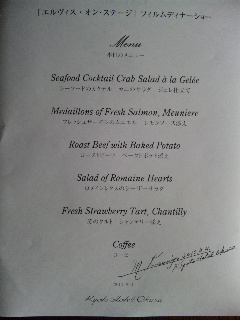 「エルヴィス・オン・ステージ」フィルムディナーショー
Menu
本日のメニュー
Seafood Cocktail Crab Salad à la Gelée
シーフードのカクテル カニのサラダ ジュレ仕立て
Medaillons of Fresh Salmon, Meuniere
フレッシュサーモンのムニエル レモンソース添え
Roast Beef with Baked Potato
ローストビーフ ベークドポテト添え
Salad of Romaine Hearts
ロメインレタスのシーザーサラダ
Fresh Strawberry Tart, Chantilly
苺のタルト シャンテリー添え
Coffee
コーヒー
Kyoto Hotel Okura